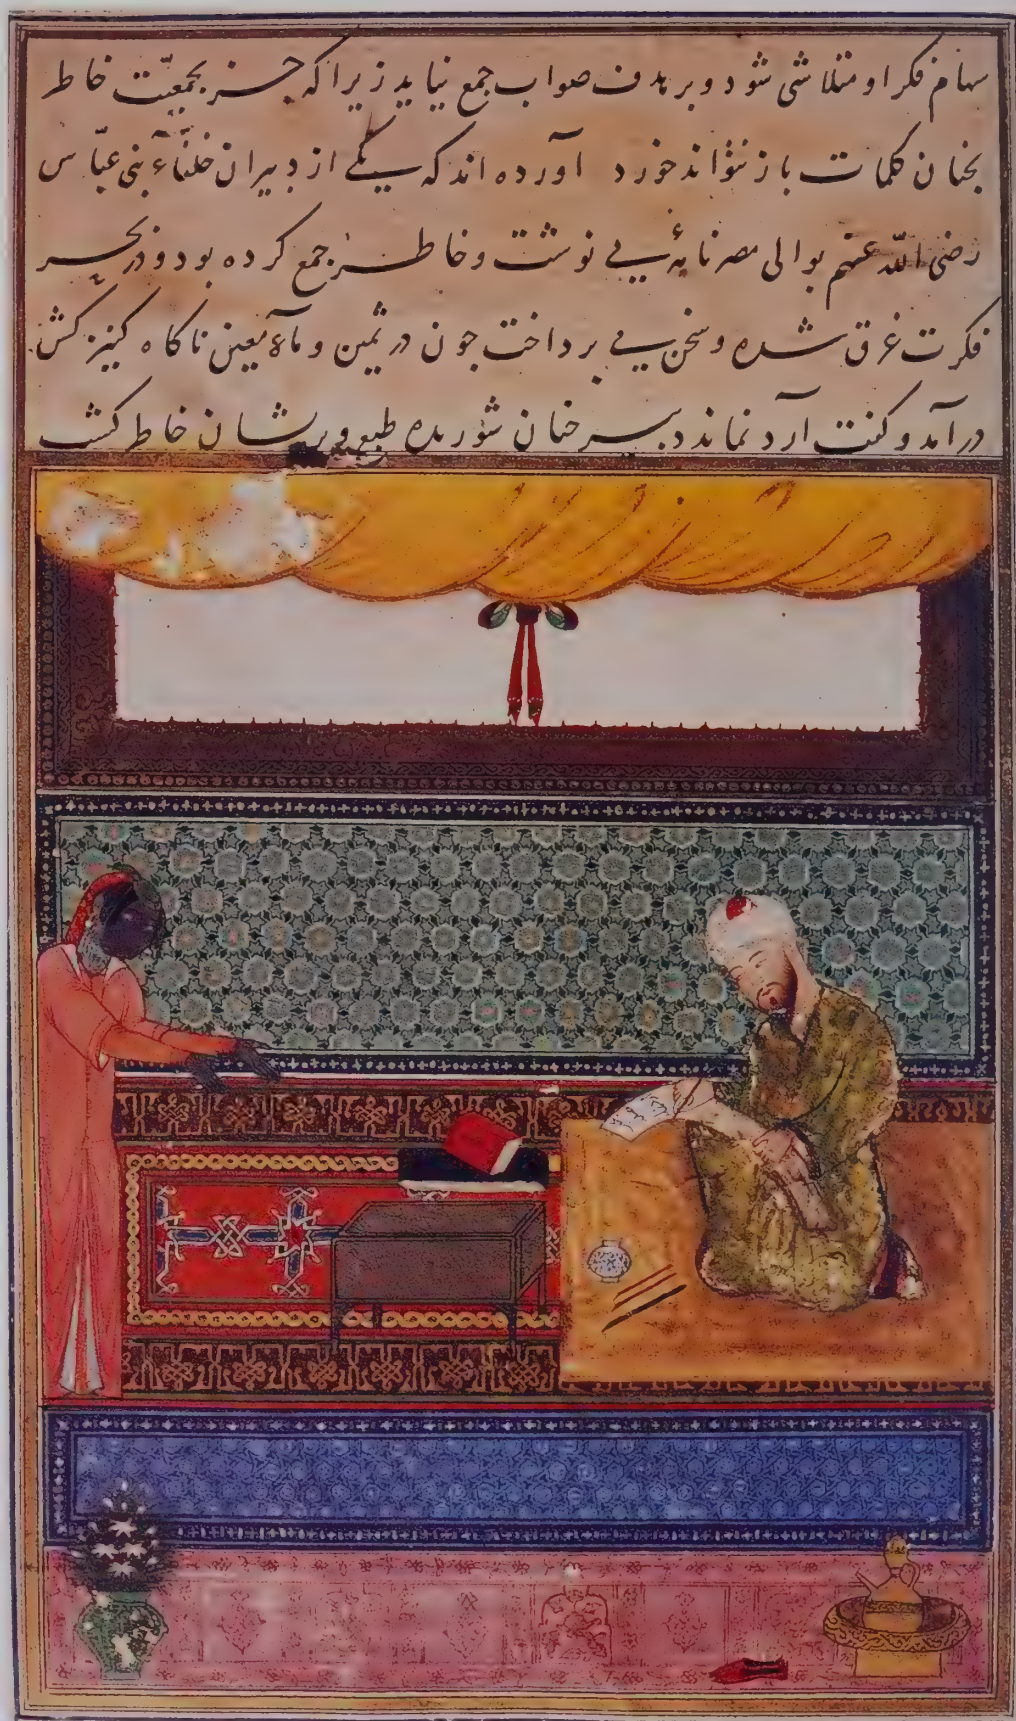 سهام فکر او متلاشی شود و بر هدف صواب جمع نیاید زیرا که جز بجمعیّت خاطر
بجنان کلمات باز نتواند خورد آورده اند که یکی از دبیران خلفاء بنی عبّاس
رضی الله عنهم بوالی مصر نامۀ می نوشت و خاطر جمع کرده بود و در بحر
فکرت غرق شده و سخن می برداخت جون در ثمین و ماء معین ناکاه کنیزکش
درآمد و کفت آرد نماند دبیر جنان شوریده طبع و بریشان خاطر کشت